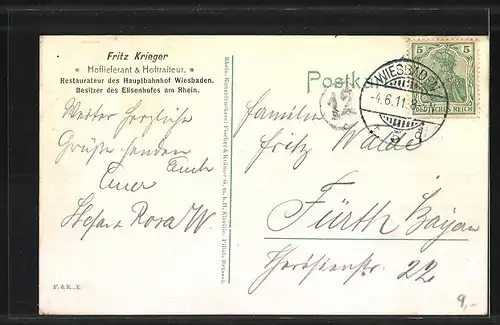 Fritz Krieger
* Hoflieferant & Hoftraiteur. *
Restaurateur des Hauptbahnhof Wiesbaden.
Besitzer des Elisenhofes am Rhein.
Weiter herzliche
Grüße senden
Euch
Euer
Stefan Rosa W
F. & K., E.
Postka
5 5
DEUTSCHES REICH
WIESBADEN
-4.6.11.
12
Familie
Fritz
Fürth Bayern
Theresienstr. 22
9,-